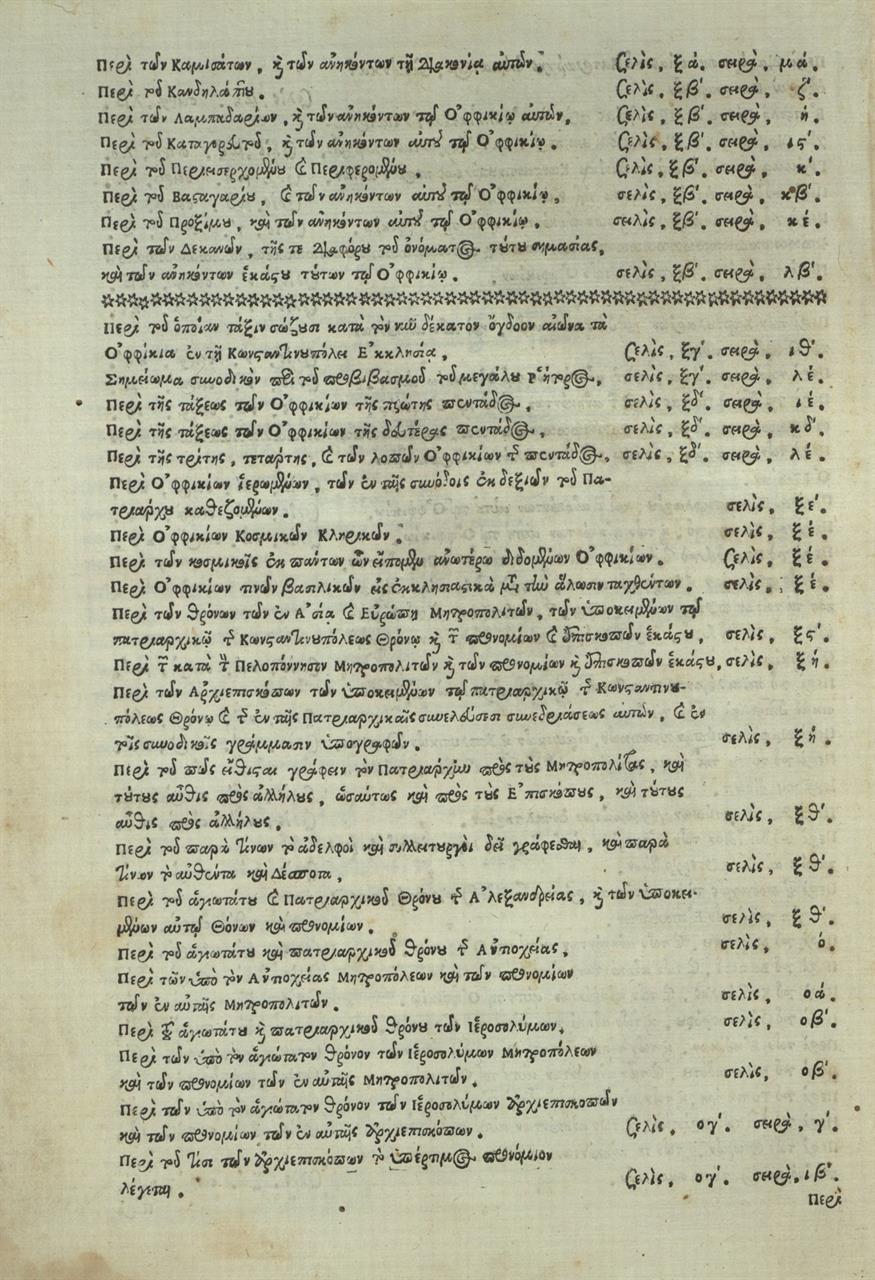 Περὶ τῶν Καμισάτων, καὶ τῶν ἀνηκόντων τῇ Διακονίᾳ αὐτῶν. σελὶς, ξα΄. σειρὰ, μα΄.
Περὶ τοῦ Κανδηλάπτου. σελὶς, ξβ΄. σειρὰ, ζ΄.
Περὶ τῶν Λαμπαδαρίων, καὶ τῶν ἀνηκόντων τῷ Ὀφφικίῳ αὐτῶν. σελὶς, ξβ΄. σειρὰ, ή.
Περὶ τοῦ Καταγοράρου, καὶ τῶν ἀνηκόντων αὐτοῦ τῷ Ὀφφικίῳ. σελὶς, ξβ΄. σειρὰ, ις΄.
Περὶ τοῦ Περιεισερχομένου καὶ Περιφερομένου. σελὶς, ξβ΄. σειρὰ, κ΄.
Περὶ τοῦ Βασταγαρίου, καὶ τῶν ἀνηκόντων αὐτοῦ τῷ Ὀφφικίῳ. σελὶς, ξβ΄. σειρὰ, κβ΄.
Περὶ τοῦ Προξίμου, καὶ τῶν ἀνηκόντων αὐτοῦ τῷ Ὀφφικίῳ. σειλὶς, ξβ΄. σειρὰ, κέ.
Περὶ τῶν Δεκανῶν, τῆς τε διαφόρου τοῦ ὀνόματος τούτου σημασίας,
καὶ τῶν ἀνηκόντων ἑκάστου τούτων τῷ Ὀφφικίῳ. σελὶς, ξβ΄. σειρὰ, λβ΄.
Περὶ τοῦ ὁποίαν τάξιν σώζουσι κατὰ τὸν νῦν δέκατον ὄγδοον αἰῶνα τὰ
Ὀφφίκια ἐν τῇ Κωνσταντινουπόλει Ἐκκλησίᾳ. σελὶς, ξγ΄. σειρὰ, ιθ΄.
Σημείωμα συνοδικὸν περὶ τοῦ προβιβασμοῦ τοῦ μεγάλου Ῥήτορος. σελὶς, ξγ΄. σειρὰ, λέ.
Περὶ τῆς τάξεως τῶν Ὀφφικίων τῆς πρώτης πεντάδος. σελὶς, ξδ΄. σειρὰ, ιέ.
Περὶ τῆς τάξεως τῶν Ὀφφικίων τῆς δευτέρας πεντάδος. σελὶς, ξδ΄. σειρὰ, κδ΄.
Περὶ τῆς τρίτης, τετάρτης, καὶ τῶν λοιπῶν Ὀφφικίων τῆς πεντάδος. σελὶς, ξδ΄. σειρὰ, λέ.
Περὶ Ὀφφικίων ἱερωμένων, τῶν ἐν ταῖς συνόδοις ἐκ δεξιῶν τοῦ Πα-
τριάρχου καθεζομένων. σελὶς, ξε΄.
Περὶ Ὀφφικίων Κοσμικῶν Κληρικῶν. σελὶς, ξέ.
Περὶ τῶν κοσμικοῖς ἐκ πάντων ὧν εἴπομεν ἀνωτέρω διδομένων Ὀφφικίων. σελὶς, ξέ.
Περὶ Ὀφφικίων τινῶν βασιλικῶν εἰς ἐκκλησιαστικὰ μετὰ τὴν ἅλωσιν ταχθέντων. σελὶς, ξέ.
Περὶ τῶν Θρόνων τῶν ἐν Ἀσίᾳ καὶ Εὐρώπῃ Μητροπολιτῶν, τῶν ὑποκειμένων τῷ
πατριαρχικῷ τῆς Κωνσταντινουπόλεως Θρόνῳ καὶ τῶν προνομίων καὶ ἐπισκοπῶν ἑκάστου. σελὶς, ξς΄.
Περὶ τῶν κατὰ τὴν Πελοπόννησιν Μητροπολιτῶν καὶ τῶν προνομίων καὶ ἐπισκοπῶν ἑκάστου, σελὶς, ξή.
Περὶ τῶν Ἀρχιεπισκόπων τῶν ὑποκειμένων τῷ πατριαρχικῷ τῆς Κωνσταντινου-
πόλεως Θρόνῳ καὶ τῆς ἐν ταῖς Πατριαρχικαῖς συνελεύσεσι συνεδριάσεως αὐτῶν, καὶ ἐν
τοῖς συνοδικοῖς γράμμασιν ὑπογραφῶν. σελὶς, ξή.
Περὶ τοῦ πῶς εἴθισται γράφειν τὸν Πατριάρχην πρὸς τοὺς Μητροπολίτας, καὶ
τούτους αὖθις πρὸς ἀλλήλους, ὡσαύτως καὶ πρὸς τοὺς Ἐπισκόπους, καὶ τούτους
αὖθις πρὸς ἀλλήλους. σελὶς, ξθ΄.
Περὶ τοῦ παρὰ τίνων τὸ ἀδελφοὶ καὶ συλλειτουργοὶ δεῖ γράφεσθαι, καὶ παρὰ
τίνων τὸ αὐθέντα καὶ Δέσποτα. σελὶς, ξθ΄.
Περὶ τοῦ ἁγιωτάτου καὶ Πατριαρχικοῦ Θρόνου τῆς Ἀλεξανδρείας, καὶ τῶν ὑποκει-
μένων αὐτῷ Θόνων καὶ προνομίων. σελὶς, ξθ΄.
Περὶ τοῦ ἁγιωτάτου καὶ πατριαρχικοῦ θρόνου τῆς Ἀντιοχείας. σελὶς, ό.
Περὶ τῶν ὑπὸ τὸν Ἀντιοχείας Μητροπόλεων καὶ τῶν προνομίων
τῶν ἐν αὐταῖς Μητροπολιτῶν. σελὶς, οά.
Περὶ τοῦ ἁγιωτάτου καὶ πατριαρχικοῦ θρόνου τῶν Ἱεροσολύμων. σελὶς, οβ΄.
Περὶ τῶν ὑπὸ τὸν ἁγιώτατον θρόνον τῶν Ἱεροσολύμων Μητροπόλεων
καὶ τῶν προνομίων τῶν ἐν αὐταῖς Μητροπολιτῶν. σελὶς, οβ΄.
Περὶ τῶν ὑπὸ τὸν ἁγιώτατον θρόνον τῶν Ἱεροσολύμων Ἀρχιεπισκοπῶν
καὶ τῶν προνομίων τῶν ἐν αὐταῖς Ἀρχιεπισκόπων. σελὶς, ογ΄. σειρὰ, γ΄.
Περὶ τοῦ τίσι τῶν Ἀρχιεπισκόπων τὸ ὑπέρτιμος προνόμιον
λέγεται. σελὶς, ογ΄. σειρὰ, ιβ΄.
Περὶ